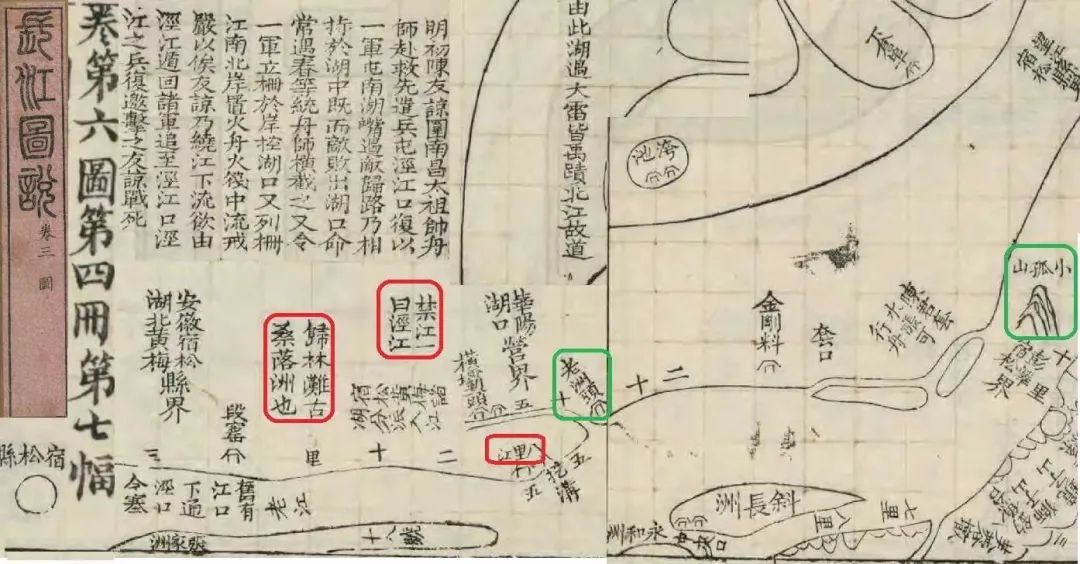 長江圖說
卷三 圖
卷第六圖第四冊第七幅
明初陳友諒圍南昌太祖帥舟
師赴救先遣兵屯涇江口復以
一軍屯南湖嘴遏敵歸路乃相
持於湖中既而敵敗出湖口命
常遇春等統舟師橫截之又令
一軍立柵於岸控湖口又列柵
江南北岸置火舟火筏中流戒
嚴以俟友諒乃繞江下流欲由
涇江遁回諸軍追至涇江口涇
江之兵復邀擊之友諒戰死
由此湖過大雷皆禹蹟北江故道
望江縣
宿松
泊池
分分
小孤山
陳君套
水漲可
行舟
套口
金剛料
分
彭澤
宿松界
十里
二十
華陽營界
湖口
老洲頭
分
十
五
禁江一
曰涇江
歸林灘古
桑落洲也
安徽宿松縣界
湖北黃梅
段窰
分
三
里
十
二
八里江
五
挖溝
五
宿松縣
舊有
江口
下通
涇口
今塞
老江
張家洲
十八號
斜長洲
永和洲
八里
七里